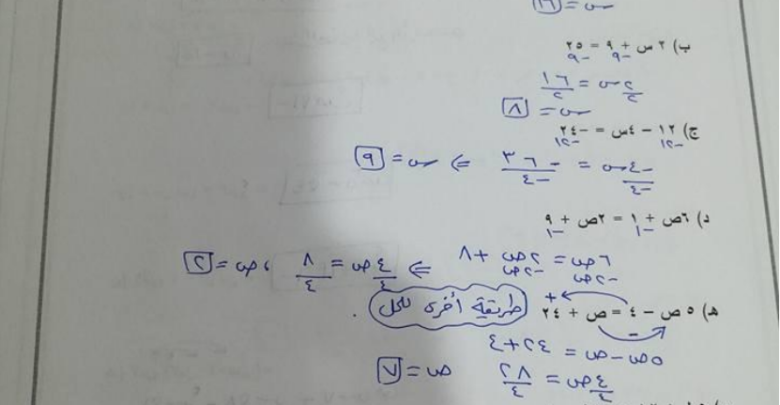 س = ١٦
ب) ٢س + ٩ = ٢٥
-٩ -٩
٢س/٢ = ١٦/٢
س = ٨
ج) ١٢ - ٤س = -٢٤
-١٢ -١٢
-٤س/-٤ = -٣٦/-٤ => س = ٩
د) ٦ص + ١ = ٢ص + ٩
-١ -١
٦ص = ٢ص + ٨ => ٤ص/٤ = ٨/٤ ، ص = ٢
-٢ص -٢ص
هـ) ٥ص - ٤ = ص + ٢٤ طريقة أخرى للحل .
+ -
٥ص - ص = ٢٤ + ٤
٤ص/٤ = ٢٨/٤ ص = ٧